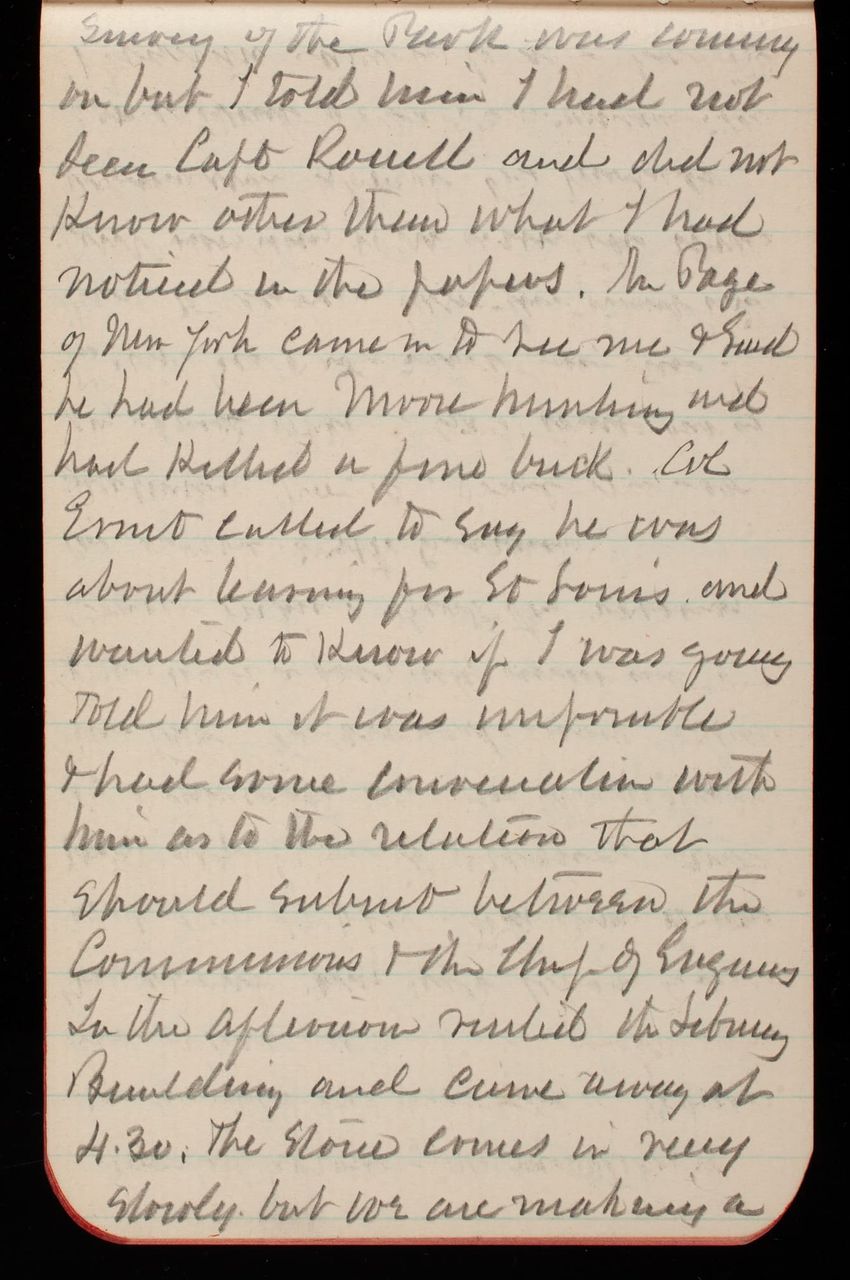 Survey of the Park was coming
on but I told him I had not
seen Capt Rowell and did not
Know other than what I had
noticed in the papers. Mr Page
of New York came in to see me & Said
he had been Moose hunting and
had Killed a fine buck. Col
Ernst called to say he was
about leaving for St Louis and
wanted to Know if I was going
Told him it was impossible
& had some conversation with
him as to the relation that
should subsist between the
Commissions & the Chief of Engineers
In the afternoon visited the Library
Building and came away at
4.30. The Stone comes in very
slowly but we are making a